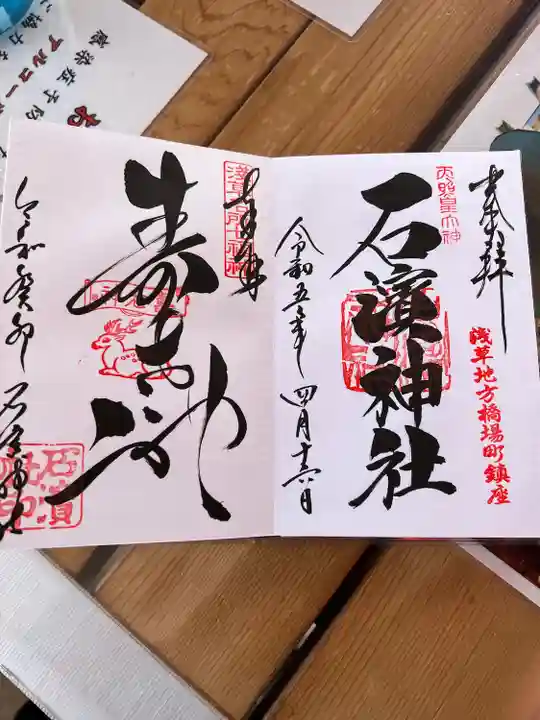 奉拝
天照皇大神
石濱神社
浅草地方橋場町鎮座
令和五年四月十六日
奉拝
浅草名所七福神
寿老神
令和癸卯
石濱神社
石濱
社印
アルコー